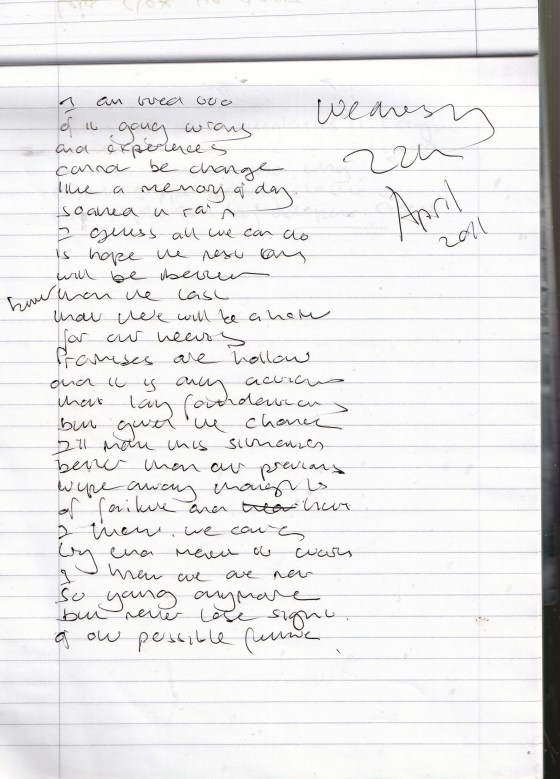 Wednesday
22nd
April
2011
of
of it going wrong
and experiences
cannot be change
like a memory of day
soaked in rain
I guess all we can do
is hope the next day
will be better
than the last
that there will be a
for our
Promises are hollow
and it is only actions
that lay foundations
but given the chance
I'll make this summer
better than our previous
wipe away thoughts
of failure and
I know we can
try and make it
I know we are not
so young anymore
but never lose sight
of our possible future